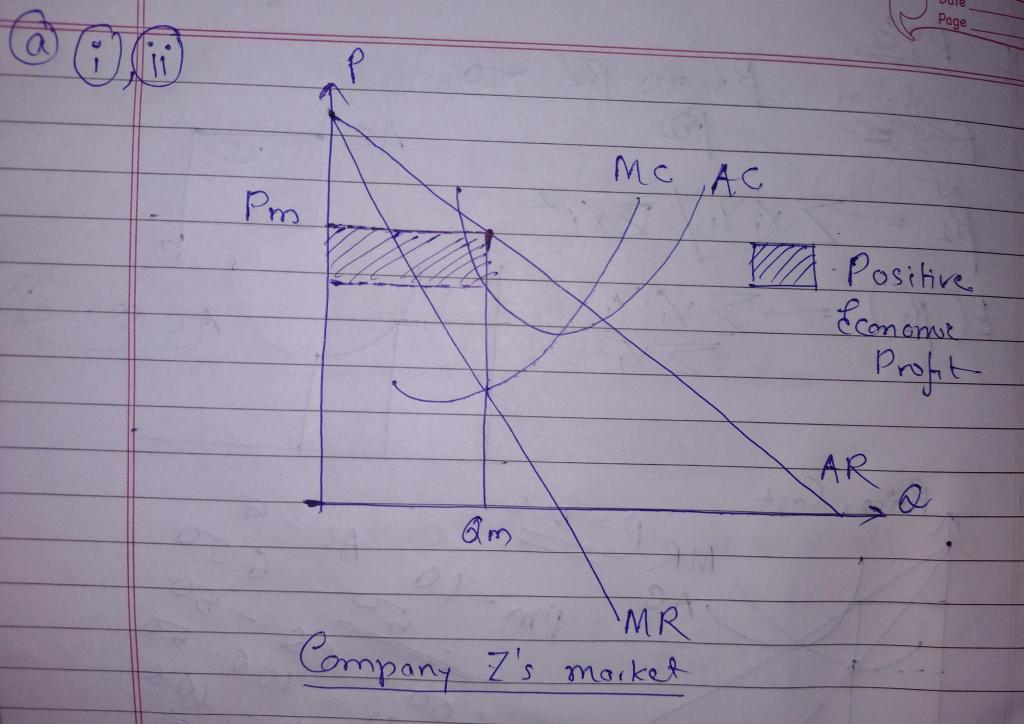 Date
Page
a i, ii
P
MC AC
Pm
Positive
Economic
Profit
AR
Q
Qm
MR
Company Z's market